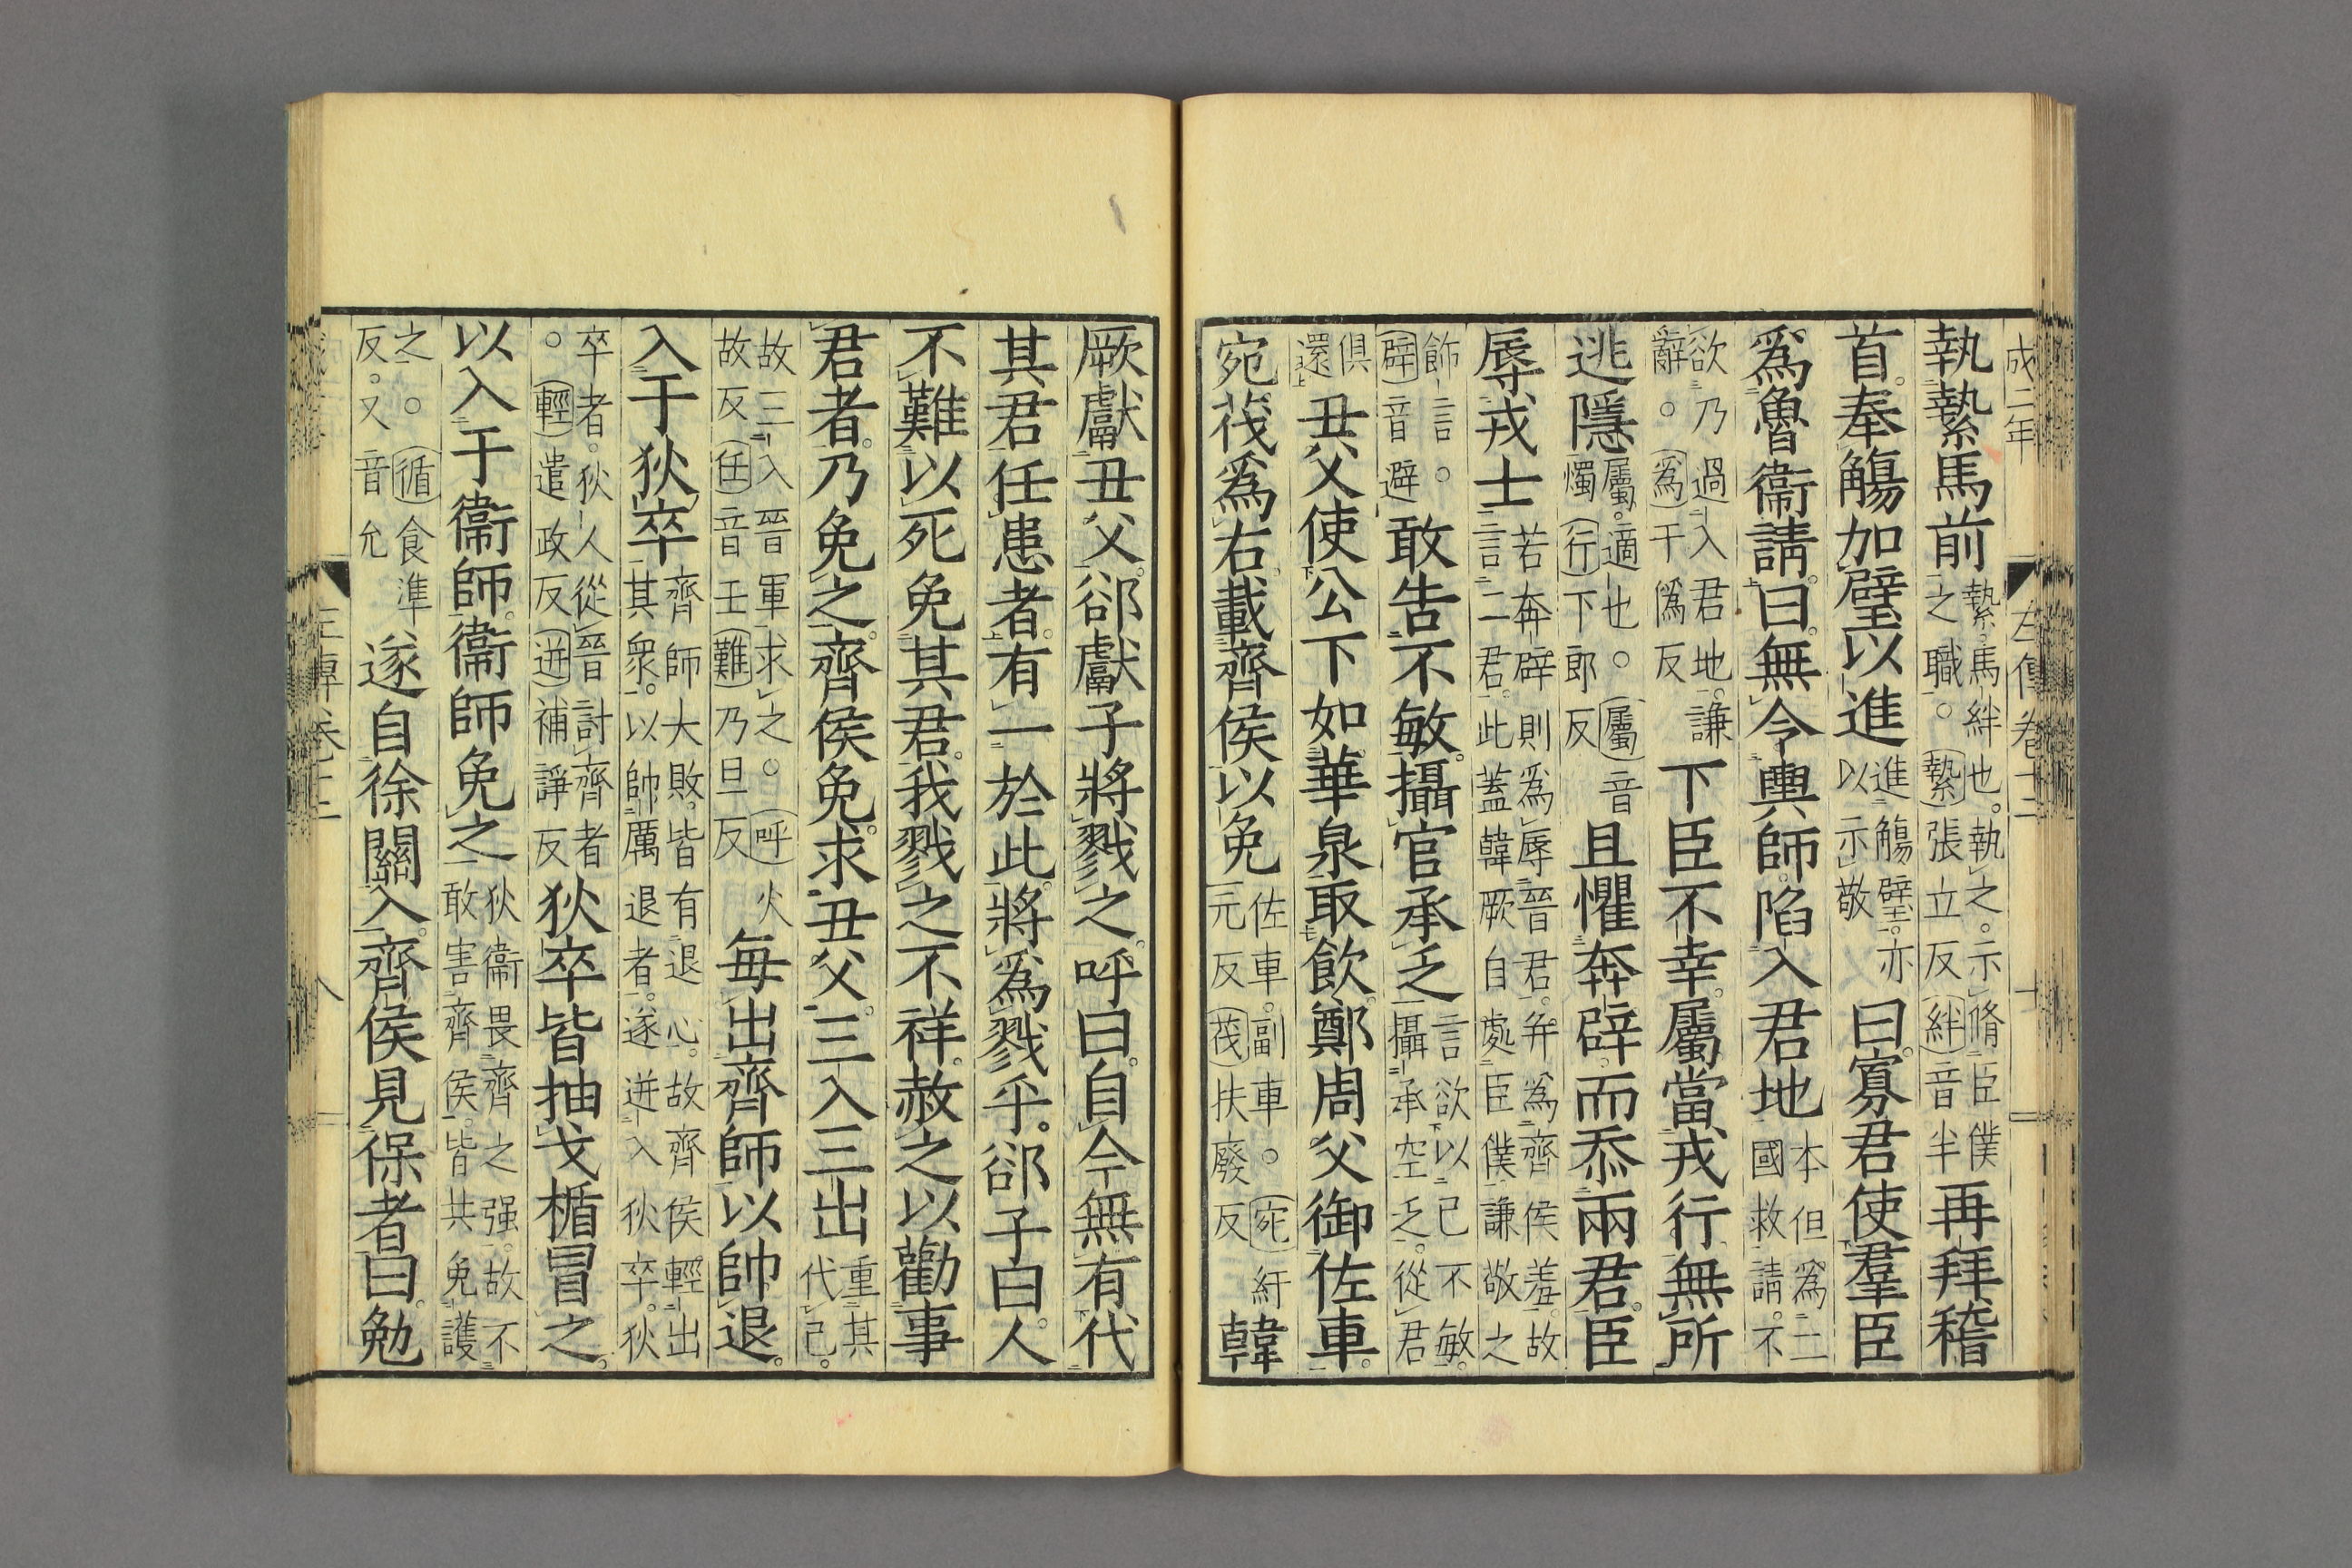 成二年　左傳卷十二　十
執縶馬前縶。馬絆也。執之。示脩臣僕之職。○縶張立反絆音半再拜稽
首。奉觴加璧以進進觴璧。亦以示敬曰。寡君使羣臣
爲魯衞請。曰。無令輿師陷入君地本但爲二國救請。不
欲乃過入君地。謙辭。○爲于僞反下臣不幸。屬當戎行。無所
逃隱屬。適也。○屬音燭行下郎反且懼奔辟。而忝兩君。臣
辱戎士若奔辟。則爲辱晉君。并爲齊侯羞。故言二君。此蓋韓厥自處臣僕謙敬之
飾言。○辟音避敢告不敏。攝官承乏言欲以己不敏。攝承空乏。從君
俱還丑父使公下如華泉取飲。鄭周父御佐車。
宛茷爲右。載齊侯以免佐車。副車。○宛紆元反茷扶廢反韓
厥獻丑父。郤獻子將戮之。呼曰。自今無有代
其君任患者。有一於此。將爲戮乎。郤子曰。人
不難以死免其君。我戮之不祥。赦之以勸事
君者。乃免之。齊侯免。求丑父。三入三出重其代己。
故三入晉軍求之。○呼火故反任音壬難乃旦反每出齊師以帥退。
入于狄卒齊師大敗。皆有退心。故齊侯輕出其衆。以帥厲退者。遂迸入狄卒。狄
卒者。狄人從晉討齊者。○輕遣政反迸補諍反狄卒皆抽戈楯冒之。
以入于衞師。衞師免之狄衞畏齊之强。故不敢害齊侯。皆共免護
之。○循食準反。又音允遂自徐關入。齊侯見保者曰。勉